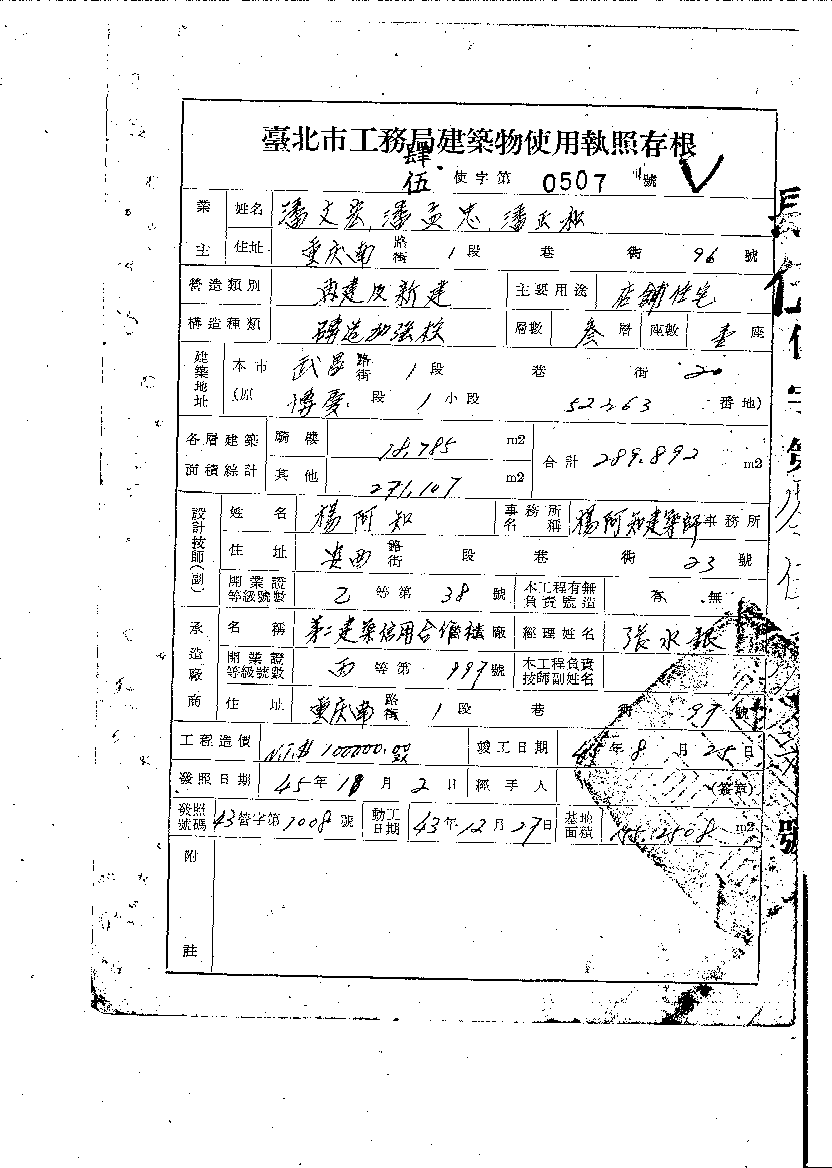 臺北市工務局建築物使用執照存根
肆伍 使字第 0507 號
業主 姓名 潘文 潘孟忠 潘
住址 重庆南 路街 1 段 巷 街 96 號
營造類別 再建及新建 主要用途 店舖住宅
構造種類 磚造加強 層數 叁 層 座數 壹 座
建築地址 本市 武昌 路街 1 段 巷 街 20
(原 博慶 段 1 小段 52,63 番地)
各層建築面積綜計 騎樓 18.785 m2 合計 289.892 m2
其他 271.107 m2
設計技師(副) 姓名 楊阿知 事務所名稱 楊阿知建築師 事務所
住址 安西 路街 段 巷 街 23 號
開業證等級號數 乙 等第 38 號 本工程有無負責監造 有 無
承造廠商 名稱 第二建築信用合作社 廠 經理姓名 張水銀
開業證等級號數 丙 等第 997 號 本工程負責技師副姓名
住址 重庆南 路街 1 段 巷 街 97 號
工程造價 N.T.$ 100000.00 竣工日期 年 8 月 25 日
發照日期 45 年 10 月 2 日 經手人 (簽章)
發照號碼 43 營字第 1008 號 動工日期 43 年 12 月 27 日 基地面積 m2
附註
號